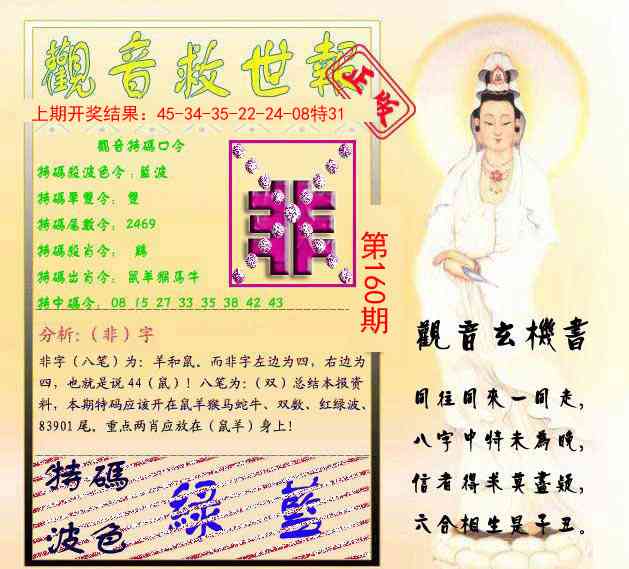 觀音救世報
正版
上期开奖结果：45-34-35-22-24-08特31
觀音特碼口令
特碼殺波色令：藍波
特碼單雙令： 雙
特碼尾數令： 2469
特碼殺肖令： 鷄
特碼出肖令： 鼠羊猴馬牛
特中碼令： 08 15 27 33 35 38 42 43
非
第160期
分析:（非）字
非字（八笔）为：羊和鼠。而非字左边为四，右边为
四，也就是说 44（鼠）！八笔为:（双）总结本报资
料，本期特码应该开在鼠羊猴马蛇牛、双数、红绿波、
83901 尾。重点两肖应放在（鼠羊）身上！
特碼
波色
綠 藍
觀音玄機書
同往同來一同走，
八字中特未為晚，
信者得米莫盡疑，
六合相生是子丑。